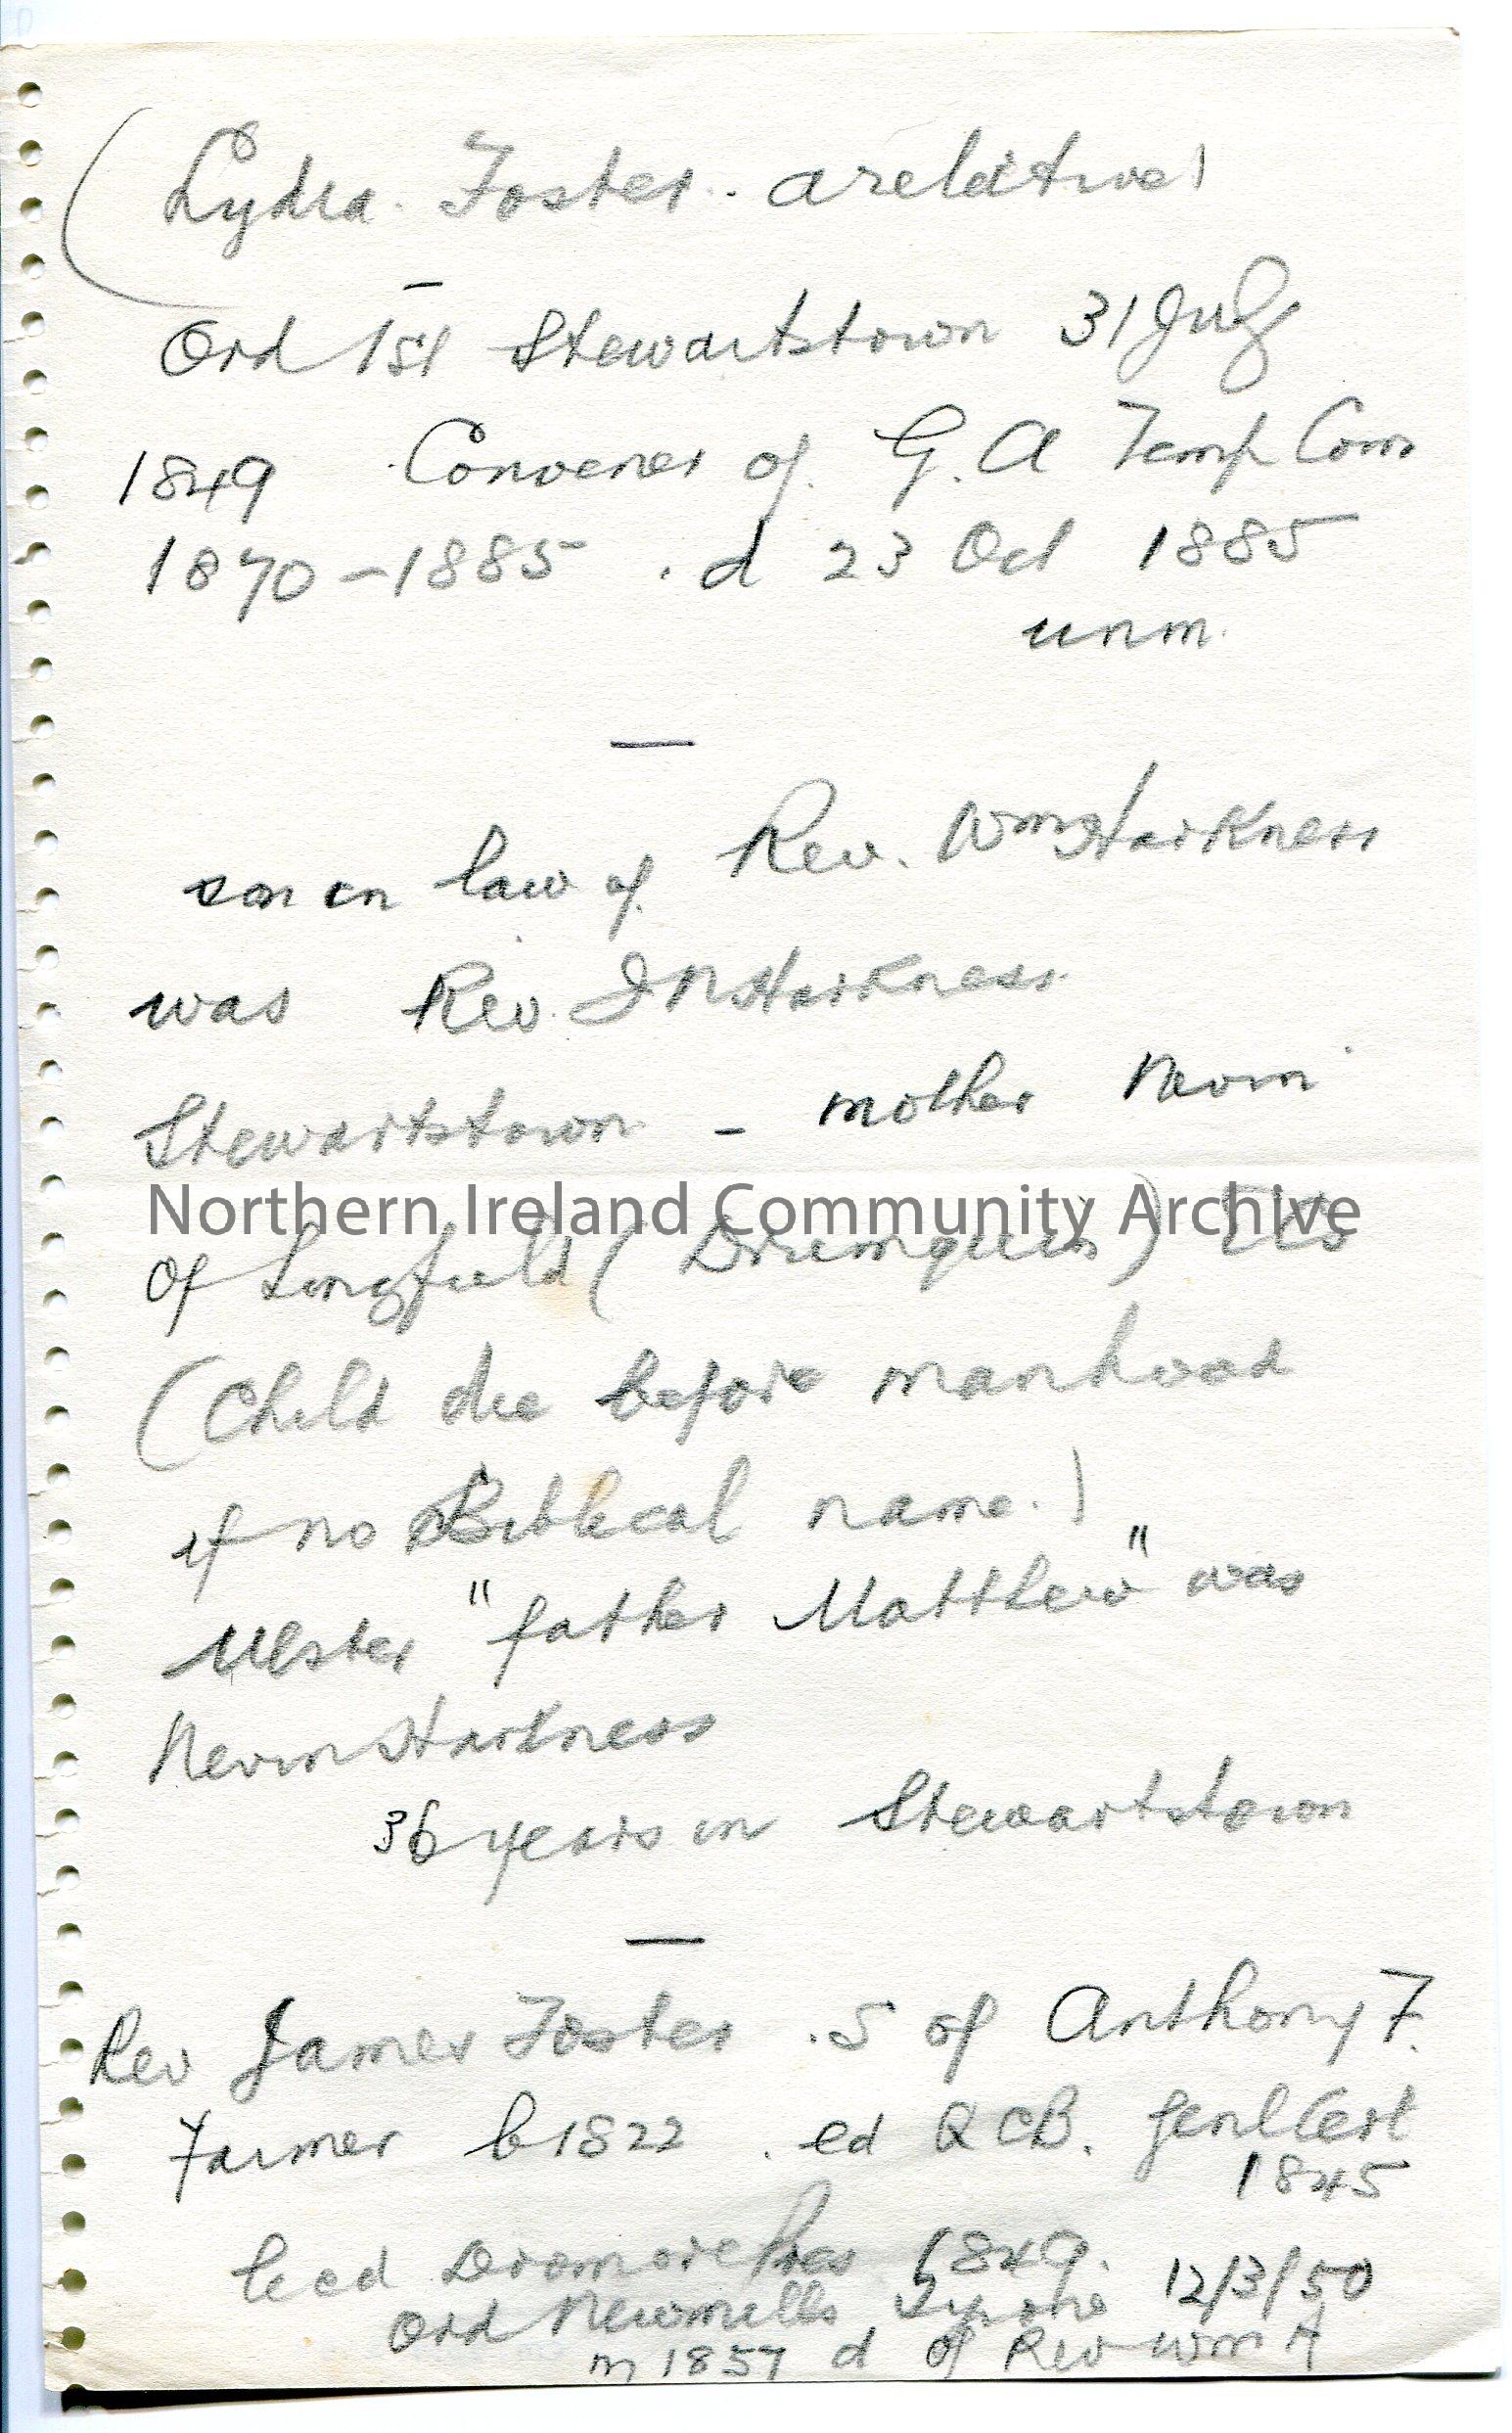 (Lydia Foster. a relative)
Ord 1st Stewartstown 31 July
1849 Convener of G. A Temp Com
1870-1885. d 23 Oct 1885
unm.
son in law of Rev. Wm Harkness
was Rev. J N. Harkness
Stewartstown - mother Nevin
Northern Ireland Community Archive
Of Longfield (Drumquin)
(Child die before manhood
if no Biblical name.)
Ulster "father Matthew" was
Nevin Harkness
36 years in Stewartstown
Rev James Foster. S of Anthony F.
Farmer b 1822. ed QCB. Genl Cert
1845
licd Dromore Pres 1849.
Ord Newmills Tyrone 12/3/50
m 1857 d of Rev Wm H